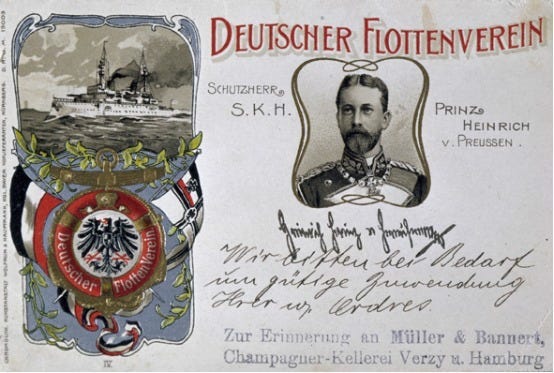 DEUTSCHER FLOTTENVEREIN
SCHUTZHERR
S.K.H.
PRINZ
HEINRICH
V. PREUSSEN.
Deutscher Flottenverein
Heinrich Prinz v Preußen
Wir bitten bei Bedarf
um gütige Zuwendung
Ihrer w. Ordres.
Zur Erinnerung an Müller & Bannert,
Champagner-Kellerei Verzy u. Hamburg
IV.